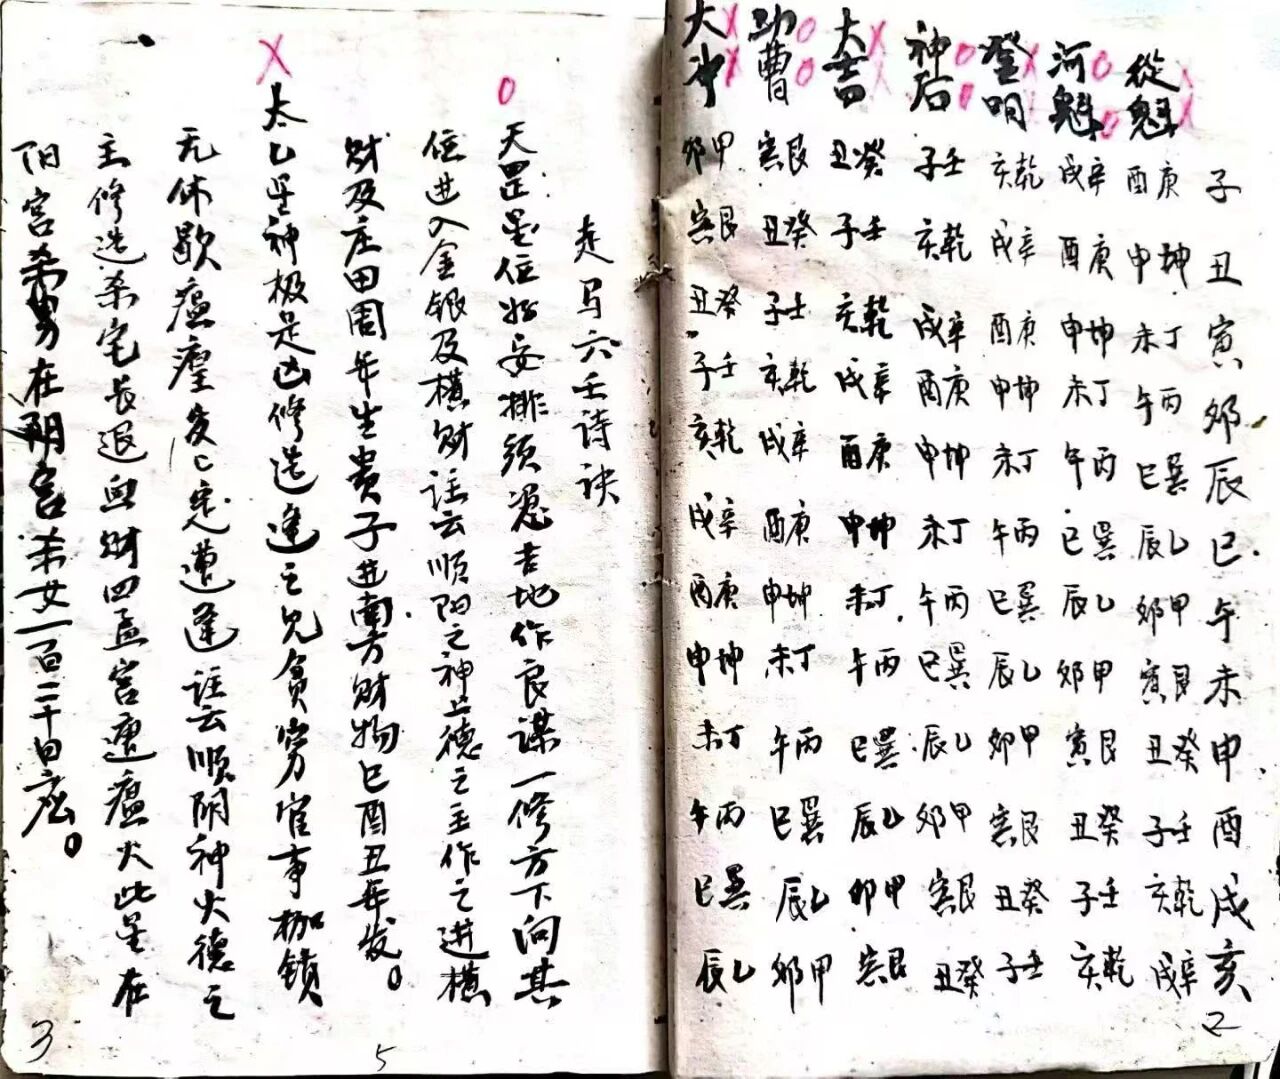 子丑寅卯辰巳午未申酉戌亥
從魁 庚酉 坤申 丁未 丙午 巽巳 乙辰 甲卯 艮寅 癸丑 壬子 乾亥 辛戌
河魁 辛戌 庚酉 坤申 丁未 丙午 巽巳 乙辰 甲卯 艮寅 癸丑 壬子 乾亥
登明 乾亥 辛戌 庚酉 坤申 丁未 丙午 巽巳 乙辰 甲卯 艮寅 癸丑 壬子
神后 壬子 乾亥 辛戌 庚酉 坤申 丁未 丙午 巽巳 乙辰 甲卯 艮寅 癸丑
大吉 癸丑 壬子 乾亥 辛戌 庚酉 坤申 丁未 丙午 巽巳 乙辰 甲卯 艮寅
功曹 艮寅 癸丑 壬子 乾亥 辛戌 庚酉 坤申 丁未 丙午 巽巳 乙辰 甲卯
大冲 甲卯 艮寅 癸丑 壬子 乾亥 辛戌 庚酉 坤申 丁未 丙午 巽巳 乙辰
2
走马六壬诗诀
天罡星位好安排须忽吉地作良谋一修方下向其
位进入金银及横财註云顺阳之神上德之主作之进横
财及庄田周年生贵子进南方财物巳酉丑年发。
太乙星神极是凶修造逢之见贪穷官事枷锁
无休歇瘟瘽发亡定遭逢註云顺阴神火德之
主修造杀宅长退血财四孟宫遭瘟火此星在
阳宫杀男在阴宫杀女一百二十日应。
5
3